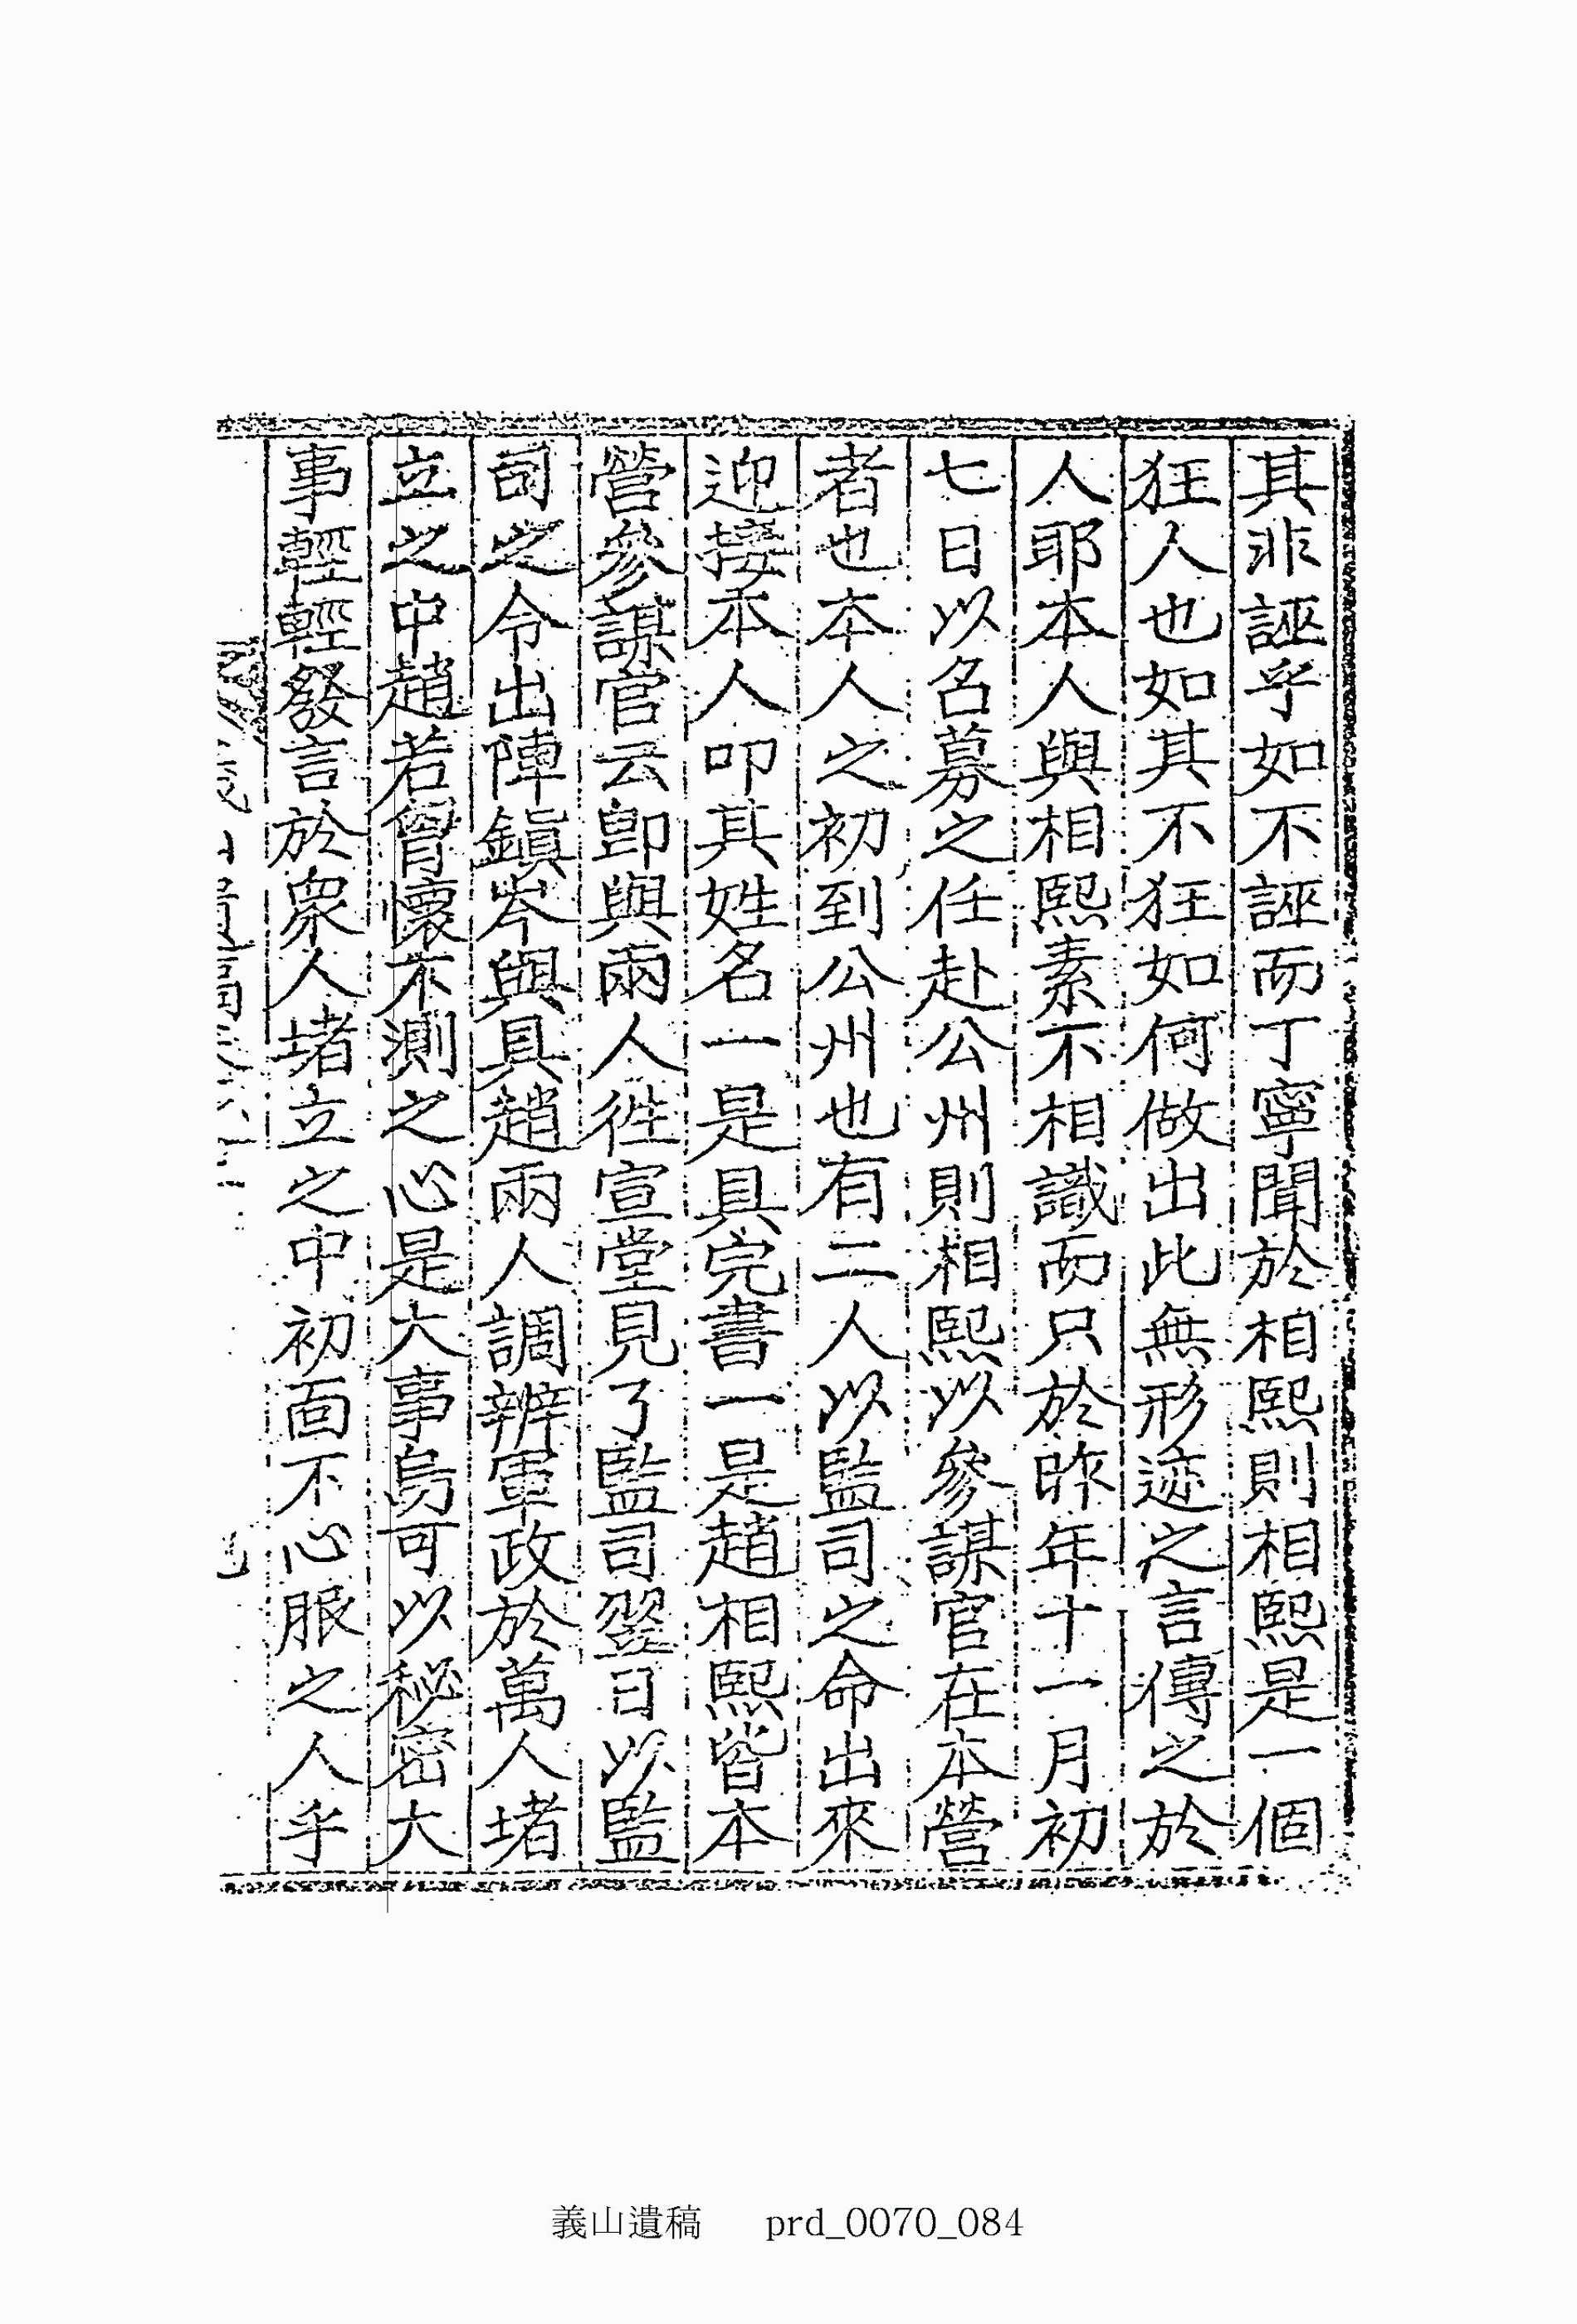 其非誣乎如不誣而丁寧聞於相熙則相熙是一個
狂人也如其不狂如何做出此無形迹之言傳之於
人耶本人與相熙素不相識而只於昨年十一月初
七日以名募之任赴公州則相熙以參謀官在本營
者也本人之初到公州也有二人以監司之命出來
迎接本人叩其姓名一是具完書一是趙相熙皆本
營參謀官云卽與兩人徃宣堂見了監司翌日以監
司之令出陣鎭岑與具趙兩人調辦軍政於萬人堵
立之中趙若胷懷不測之心是大事烏可以秘密大
事輕輕發言於衆人堵立之中初面不心服之人乎
義山遺稿 prd_0070_084